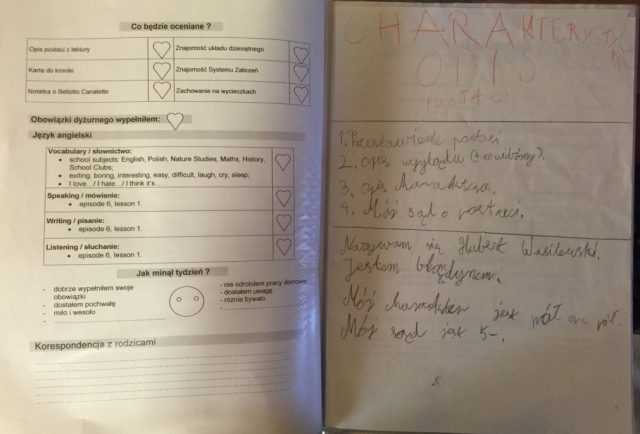 Co będzie oceniane ?
Opis postaci z lektury
Znajomość układu dziesiętnego
Karta do kroniki
Znajomość Systemu Zaliczeń
Notatka o Bellotto Canaletto
Zachowanie na wycieczkach
Obowiązki dyżurnego wypełniłem:
Język angielski
Vocabulary / słownictwo:
• school subjects: English, Polish, Nature Studies, Maths, History, School Clubs;
• exiting, boring, interesting, easy, difficult, laugh, cry, sleep;
• I love.../ I hate.../ I think it's...
Speaking / mówienie:
• episode 6, lesson 1.
Writing / pisanie:
• episode 6, lesson 1.
Listening / słuchanie:
• episode 6, lesson 1.
Jak minął tydzień ?
- dobrze wypełniłem swoje obowiązki
- dostałem pochwałę
- miło i wesoło
- nie odrobiłem pracy domowej
- dostałem uwagę
- różnie bywało
Korespondencja z rodzicami
OPIS
POSTACI
1. Przestawienie postaci
2. opis wyglądu (co widzimy?)
3. opis charakteru.
4. Mój sąd o postaci.
Nazywam się Hubert Wasilewski.
Jestem błądynem.
Mój charakter jest pół na pół.
Mój sąd jest 5-.